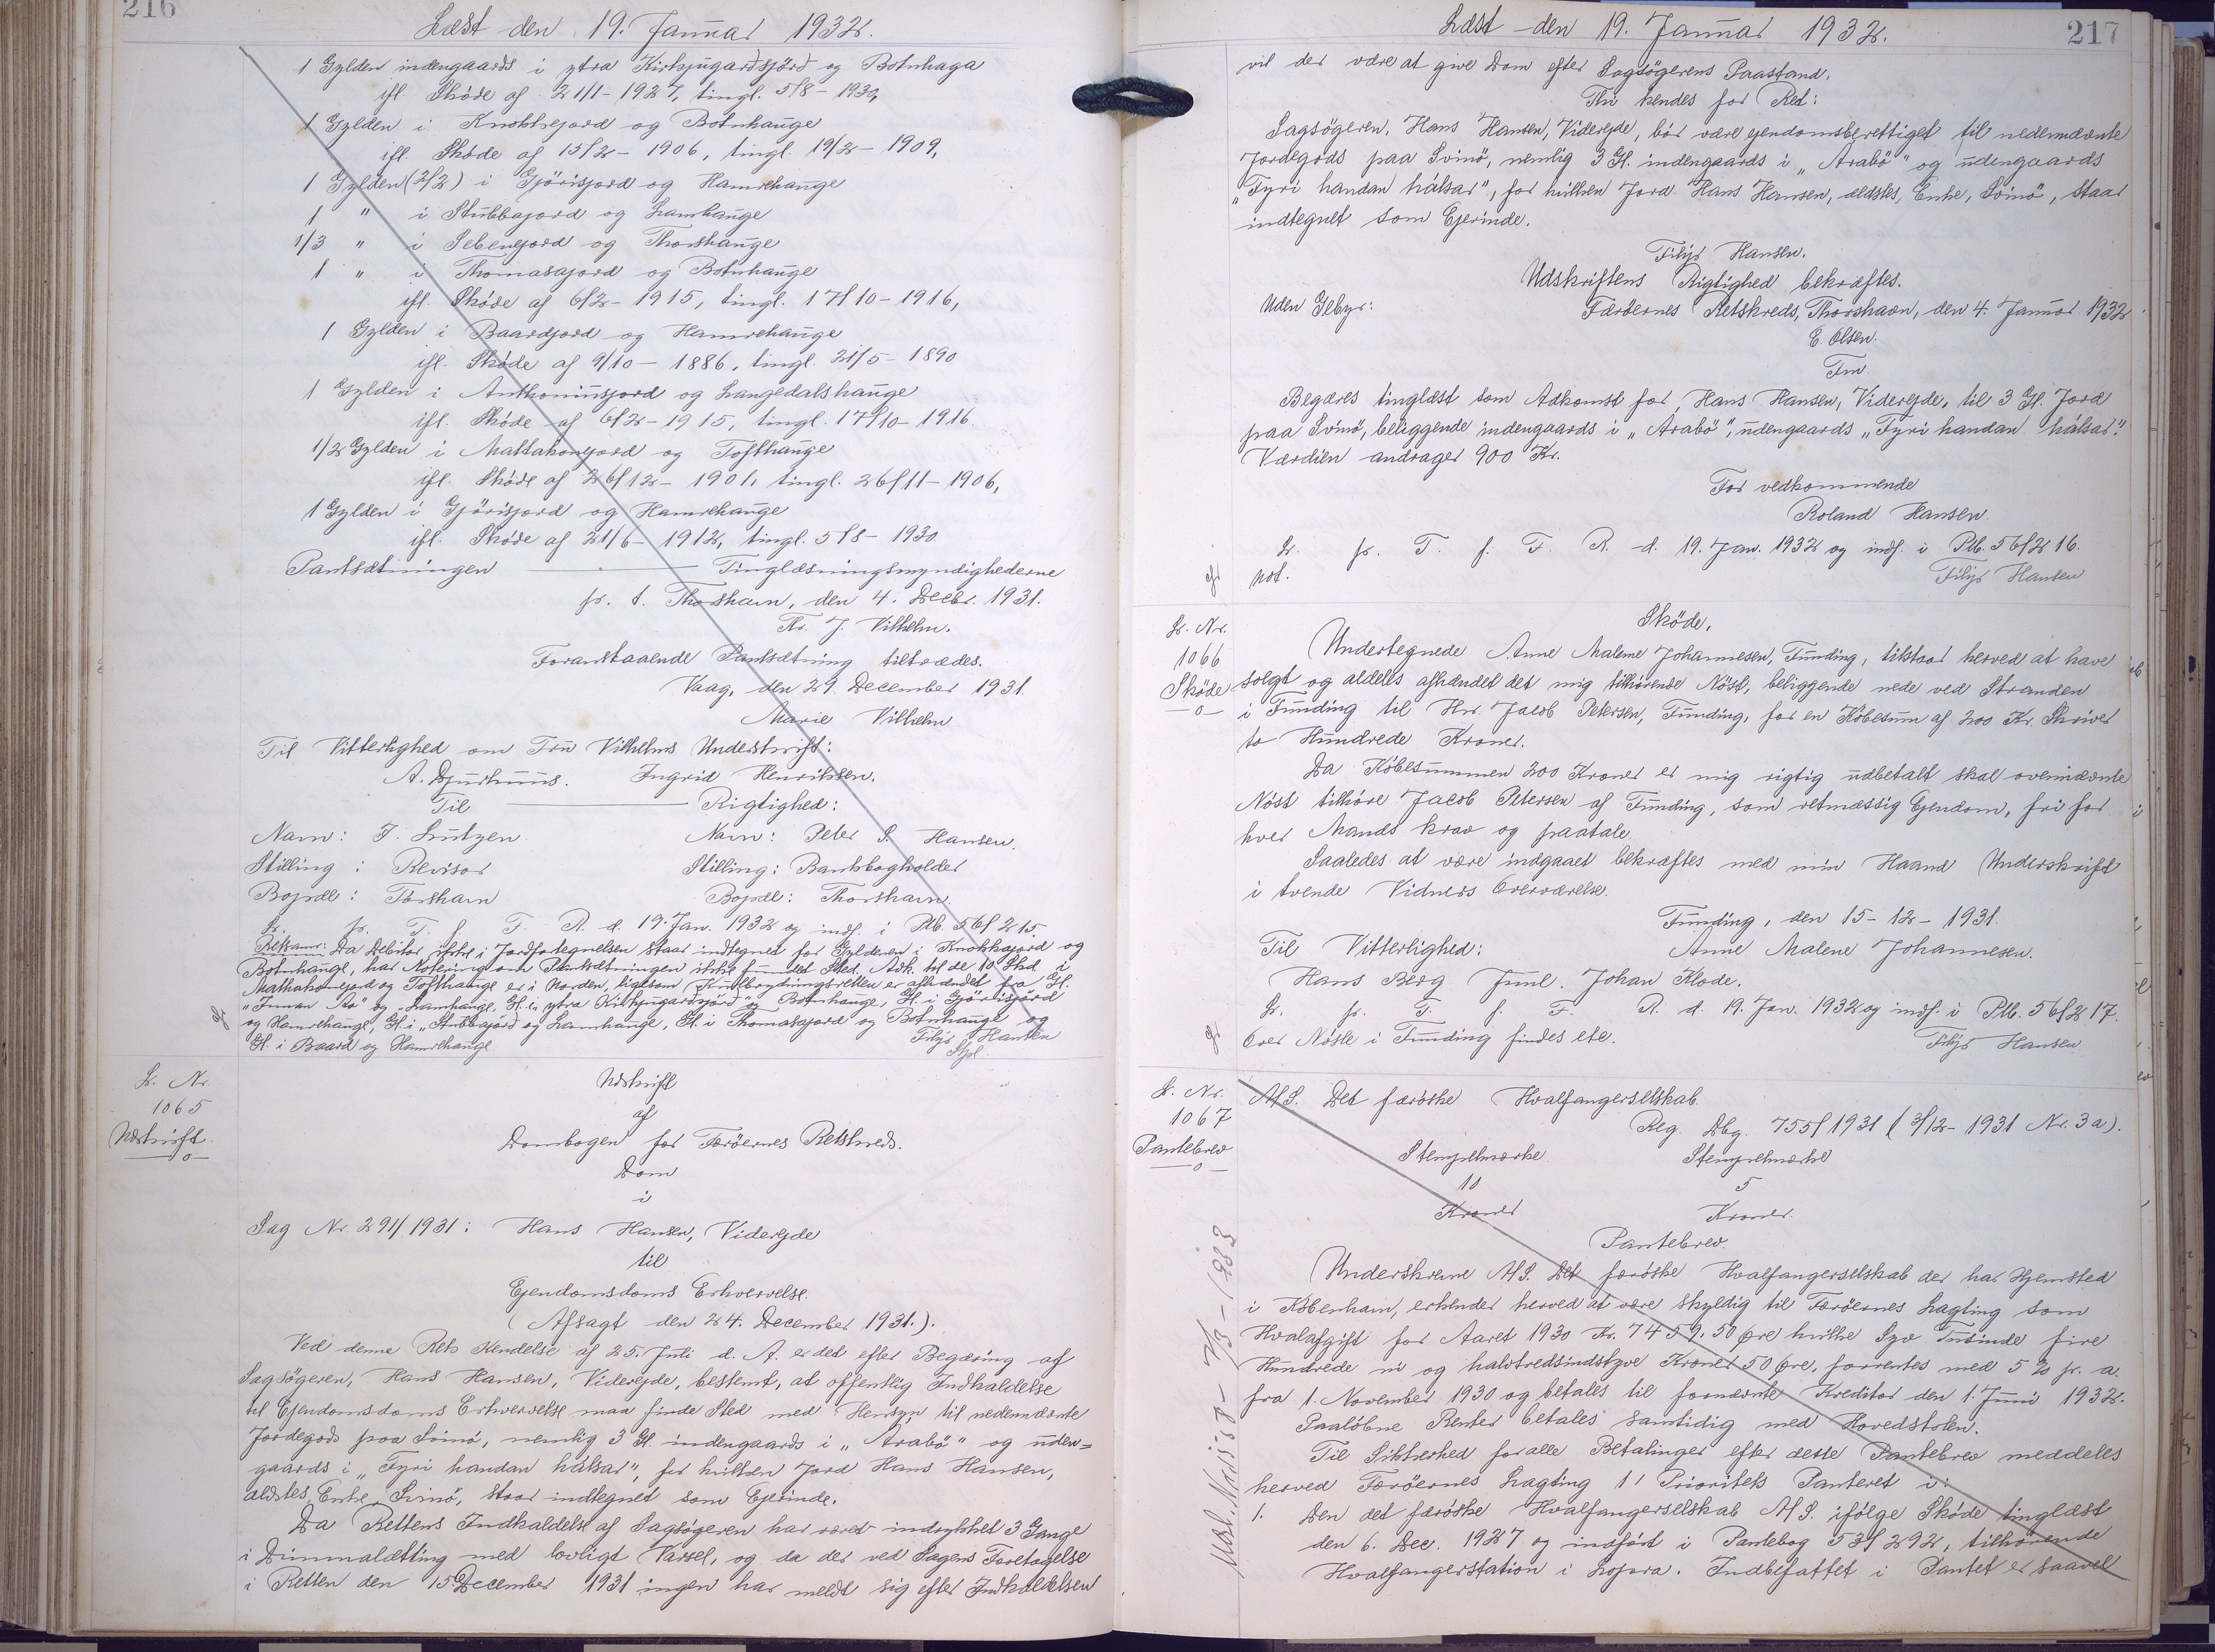 216
Læst den 19. Januar 1932.
1 Gylden indengaards i ytra Kirkjugardsjörd og Botnhaga
ifl. Skøde af 21/1-1927, tingl. 5/8-1930,
1 Gylden i Knokkejord og Botnhauge
ifl. Skøde af 15/2-1906, tingl. 19/2-1909,
1 Gylden (2/2) i Gjörisjord og Hamrehauge
1 " i Stubbajord og Lamhauge
1/3 " i Sebenjord og Thorshauge
1 " i Thomasajord og Botnhauge
ifl. Skøde af 6/2-1915, tingl. 17/10-1916,
1 Gylden i Baardjord og Hamrehauge
ifl. Skøde af 9/10-1886, tingl. 21/5-1890
1 Gylden i Anthoniusjord og Langedalshauge
ifl. Skøde af 6/2-1915, tingl. 17/10-1916.
1/2 Gylden i Mattahonejord og Tofthauge
ifl. Skøde af 26/12-1901, tingl. 26/11-1906,
1 Gylden i Gjörisjord og Hamrehauge
ifl. Skøde af 21/6-1912, tingl. 5/8-1930.
Pantsætningen ——— Tinglæsningsmyndighederne
p. t. Thorshavn, den 4. Decbr. 1931.
Kr. J. Vilhelm.
Foranstaaende Pantsætning tiltrædes.
Vaag, den 29. December 1931.
Marie Vilhelm
Til Vitterlighed om Fru Vilhelms Underskrift:
A. Djurhuus. Ingrid Henriksen.
Til ——— Rigtighed:
Navn: J. Lützen. Navn: Peter S. Hansen.
Stilling: Revisor Stilling: Bankbogholder
Bopæl: Tórshavn Bopæl: Thorshavn.
L. p. T. f. F. R. d. 19. Jan. 1932 og indf. i Ptb. 56/215.
Retsanm: Da Debitor ikke i Jordfortegnelsen staar indtegnet for Gylderen i Knokkajord og
Botnhauge, har Notering om Pantsætningen ikke fundet Sted. Adk. til de 10 Skd i
Mattahonejord og Tofthauge er i Norden, ligesom Kulbrydningsretten er afhændet fra Gl.
"Innan Aa" og "Lamhauge, Gl. i "ytra Kirkjugardsjörd" og Botnhauge, Gl. i Gjörisjörd
og Hamrehauge, Gl. i "Stubbajörd og Lamhauge, Gl. i Thomasajord og Botnhauge og
Gl. i Baard og Hamrehauge. Filip Hansen
Stpl.
L. Nr.
1065
Udskrift.
—o—
Udskrift
af
Dombogen for Færöernes Retskreds.
Dom
i
Sag Nr. 291/1931: Hans Hansen, Viderejde
til
Ejendomsdoms Erhvervelse.
(Afsagt den 24. December 1931.).
Ved denne Rets Kendelse af 25. Juli d. A. er det efter Begæring af
Sagsögeren, Hans Hansen, Viderejde, bestemt, at offentlig Indkaldelse
til Ejendomsdoms Erhvervelse maa finde Sted med Hensyn til nedennævnte
Jordegods paa Svinö, nemlig 3 Gl. indengaards i "Arabö" og uden=
gaards i "Fyri handan hálsar", for hvilken Jord Hans Hansen,
ældstes, Enke, Svinö, staar indtegnet som Ejerinde.
Da Rettens Indkaldelse af Sagsögeren har været indrykket 3 Gange
i Dimmalætting med lovligt Varsel, og da der ved Sagens Foretagelse
i Retten den 15. December 1931 ingen har meldt sig efter Indkaldelsen
217
Læst den 19. Januar 1932.
vil der være at give Dom efter Sagsögerens Paastand.
Thi kendes for Ret:
Sagsögeren, Hans Hansen, Viderejde, bör være ejendomsberettiget til nedennævnte
Jordegods paa Svinö, nemlig 3 Gl. indengaards i "Arabö" og udengaards
"Fyri handan hálsar", for hvilken Jord Hans Hansen, ældstes, Enke, Svinö, staar
indtegnet som Ejerinde.
Filip Hansen.
Udskriftens Rigtighed bekræftes.
Uden Gebyr: Færöernes Retskreds, Thorshavn, den 4. Januar 1932.
E. Olsen.
Fm.
Begæres tinglæst som Adkomst for Hans Hansen, Viderejde, til 3 Gl. Jord
paa Svinö, beliggende indengaards i "Arabö", udengaards "Fyri handan hálsar".
Værdien andrager 900 Kr.
For vedkommende
Roland Hansen.
L. p. T. f. F. R. d. 19. Jan. 1932 og indf. i Ptb. 56/216.
not. Filip Hansen
L. Nr.
1066
Skøde
—o—
Skøde.
Undertegnede Anne Malene Johannesen, Funding, tilstaar herved at have
solgt og aldeles afhændet det mig tilhörende Nöst, beliggende nede ved Stranden
i Funding til Hr. Jacob Petersen, Funding, for en Købesum af 200 Kr. Skriver
to Hundrede Kroner.
Da Købesummen 200 Kroner er mig rigtig udbetalt skal ovennævnte
Nöst tilhöre Jacob Petersen af Funding, som retmæssig Ejendom, fri for
hver Mands krav og paatale.
Saaledes at være indgaaet bekræftes med min Haand Underskrift
i tvende Vidners Overværelse.
Funding, den 15-12-1931.
Til Vitterlighed: Anne Malene Johannesen.
Hans Berg Juul. Johan Klode.
L. p. T. f. F. R. d. 19. Jan. 1932 og indf. i Ptb. 56/217.
Over Nöste i Funding findes ete. Filip Hansen.
L. Nr.
1067
Pantebrev
—o—
A/S. Det færöske Hvalfangerselskab
Reg. Dbg. 755/1931 (3/12-1931 Nr. 3a).
Stempelmærke Stempelmærke
10 5
Kroner Kroner.
Pantebrev.
Underskrevne A/S. Det færöske Hvalfangerselskab der har Hjemsted
i København, erkender herved at være skyldig til Færöernes Lagting som
Hvalafgift for Aaret 1930 Kr. 7459.50 Øre hvilke Syv Tusinde fire
Hundrede ni og halvtredsindstyve Kroner 50 Øre, forrentes med 5 % p. a.
fra 1. November 1930 og betales til fornævnte Kreditor den 1. Juni 1932.
Paaløbne Renter betales samtidig med Hovedstolen.
Til Sikkerhed for alle Betalinger efter dette Pantebrev meddeles
herved Færöernes Lagting 1' Prioritets Panteret i:
1. Den det færöske Hvalfangerselskab A/S. ifölge Skøde tinglæst
den 6. Dec. 1927 og indfört i Pantebog 53/292, tilhørende
Hvalfangerstation i Lopra. Indbefattet i Pantet er saavel